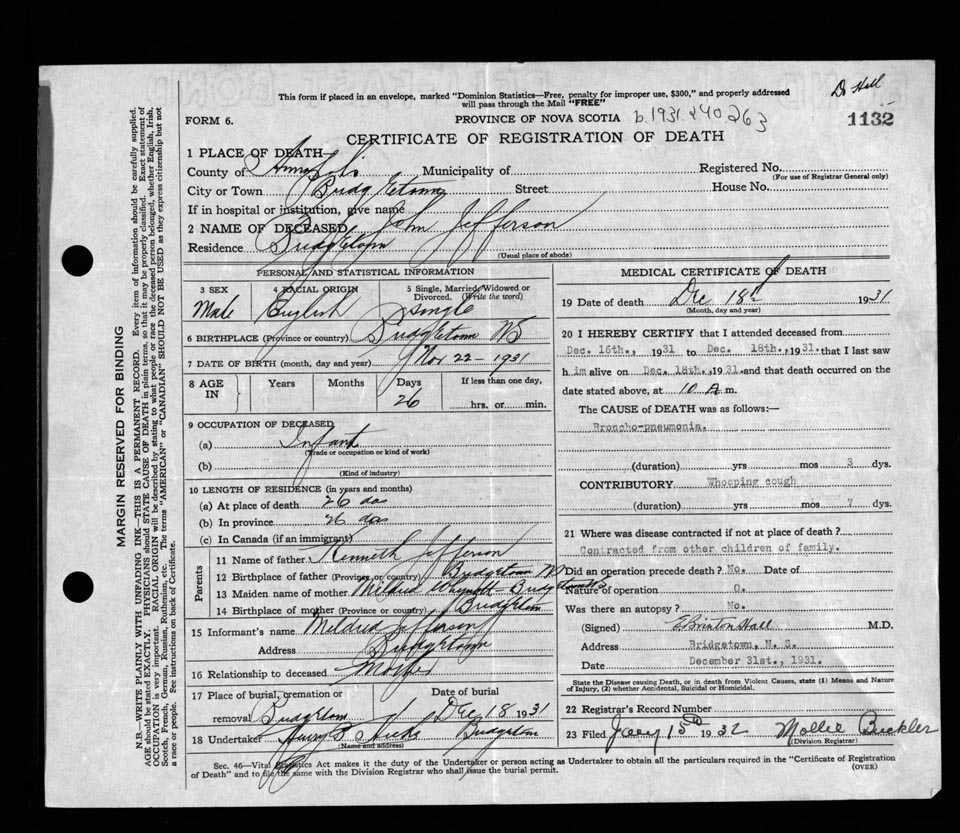 Dr Hall
This form if placed in an envelope, marked "Dominion Statistics—Free, penalty for improper use, $300," and properly addressed
will pass through the Mail "FREE"
FORM 6.
PROVINCE OF NOVA SCOTIA b.1931.240.263
1132
CERTIFICATE OF REGISTRATION OF DEATH
1 PLACE OF DEATH
County of Annapolis Municipality of Registered No.
(For use of Registrar General only)
City or Town Bridgetown Street House No.
If in hospital or institution, give name
2 NAME OF DECEASED John Jefferson
Residence Bridgetown
(Usual place of abode)
PERSONAL AND STATISTICAL INFORMATION
3 SEX Male
4 RACIAL ORIGIN English
5 Single, Married, Widowed or Divorced. (Write the word) Single
6 BIRTHPLACE (Province or country) Bridgetown NS
7 DATE OF BIRTH (month, day and year) Nov 22 - 1931
8 AGE IN Years Months Days 26 If less than one day, hrs. or min.
9 OCCUPATION OF DECEASED
(a) Infant
(Trade or occupation or kind of work)
(b)
(Kind of industry)
10 LENGTH OF RESIDENCE (in years and months)
(a) At place of death 26 das
(b) In province 26 das
(c) In Canada (if an immigrant)
Parents
11 Name of father Kenneth Jefferson
12 Birthplace of father (Province or country) Bridgetown NS
13 Maiden name of mother Mildred
14 Birthplace of mother (Province or country) Bridgetown
15 Informant's name Mildred Jefferson
Address Bridgetown
16 Relationship to deceased Mother
17 Place of burial, cremation or removal Bridgetown Date of burial Dec 18 1931
18 Undertaker Henry S Hicks Bridgetown
(Name and address)
MEDICAL CERTIFICATE OF DEATH
19 Date of death Dec 18th 1931
(Month, day and year)
20 I HEREBY CERTIFY that I attended deceased from
Dec. 16th., 1931 to Dec. 18th., 1931. that I last saw
him alive on Dec. 18th., 1931. and that death occurred on the
date stated above, at 10 A m.
The CAUSE OF DEATH was as follows:—
Broncho-pneumonia.
(duration) yrs mos 3 dys.
CONTRIBUTORY Whooping cough
(duration) yrs mos 7 dys.
21 Where was disease contracted if not at place of death?
Contracted from other children of family.
Did an operation precede death? No. Date of
Nature of operation O.
Was there an autopsy? No.
(Signed) E Brinton Hall M.D.
Address Bridgetown, N. S.
Date December 31st., 1931.
State the Disease causing Death, or in death from Violent Causes, state (1) Means and Nature
of Injury, (2) whether Accidental, Suicidal or Homicidal.
22 Registrar's Record Number
23 Filed Jany 15th 1932 Mollie Buckler
(Division Registrar)
Sec. 46—Vital Statistics Act makes it the duty of the Undertaker or person acting as Undertaker to obtain all the particulars required in the "Certificate of Registration
of Death" and to file the same with the Division Registrar who shall issue the burial permit.
(OVER)
MARGIN RESERVED FOR BINDING
N.B.—WRITE PLAINLY WITH UNFADING INK—THIS IS A PERMANENT RECORD. Every item of information should be carefully supplied.
AGE should be stated EXACTLY. PHYSICIANS should STATE CAUSE OF DEATH in plain terms, so that it may be properly classified. Exact statement of
OCCUPATION is very important. RACIAL ORIGIN will be described by stating to what people or race the deceased person belonged, whether English, Irish,
Scotch, French, German, Russian, Ruthenian, etc. The terms "AMERICAN" or "CANADIAN" SHOULD NOT BE USED as they express citizenship but not
a race or people. See instructions on back of Certificate.